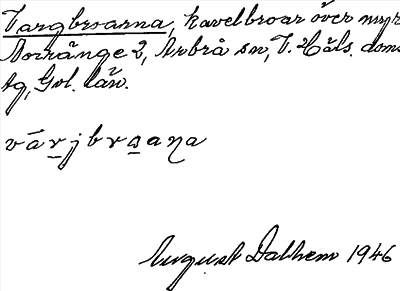 Vargbroarna, kavelbroar över myr
Norränge 2, Arbrå sn, V. Häls. doms
tg, Gvl. län.
várjbrɷaṇa
August Dalhem 1946